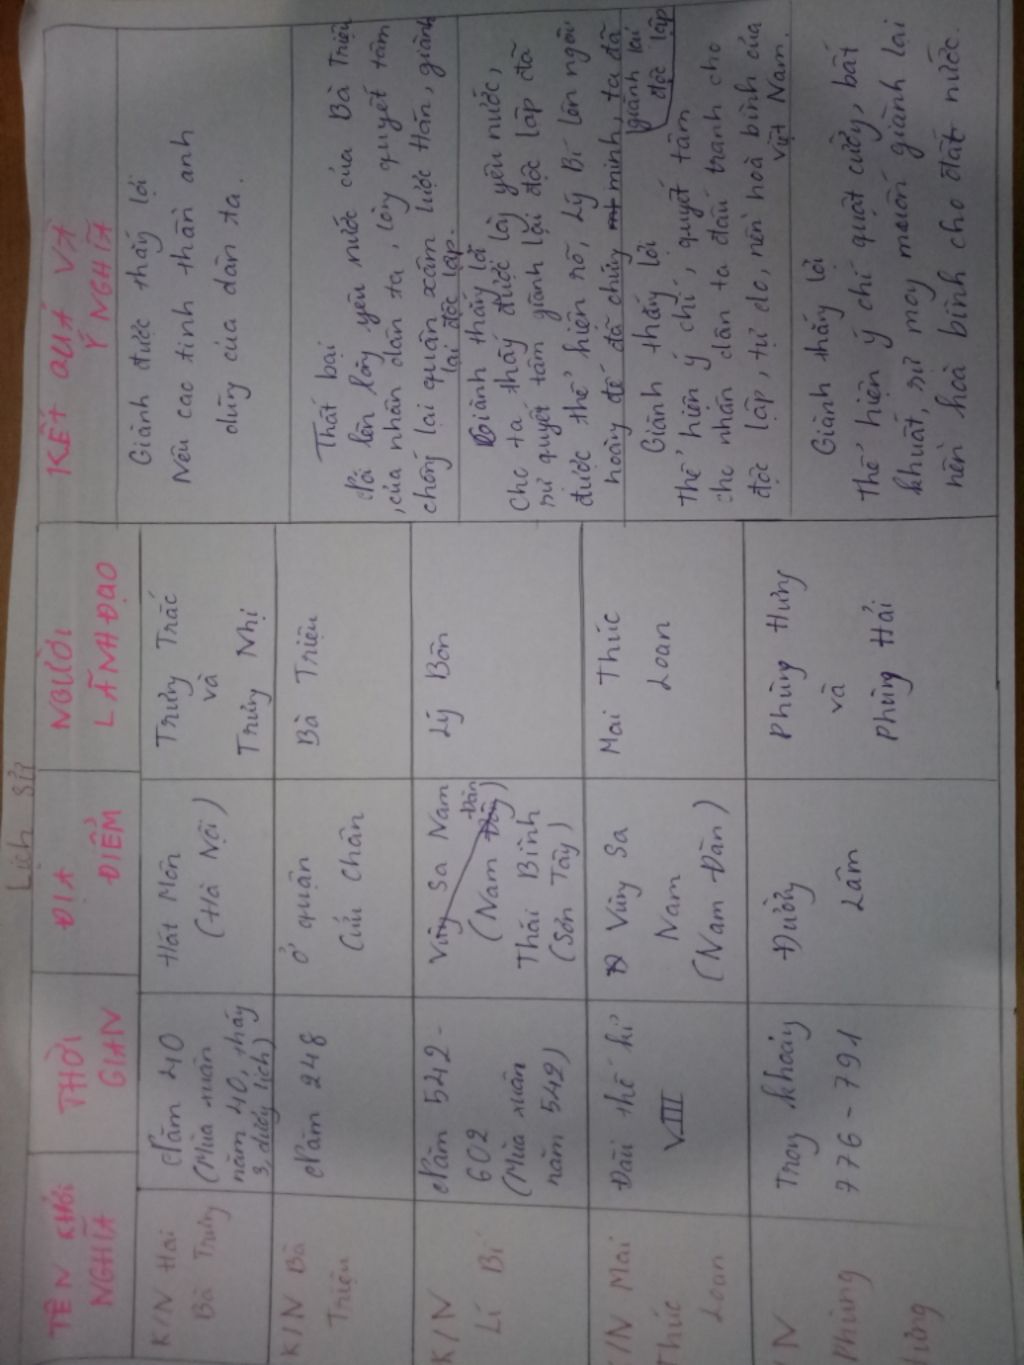 Lịch Sử
TÊN KHỞI
NGHĨA
THỜI
GIAN
ĐỊA
ĐIỂM
NGƯỜI
LÃNH ĐẠO
KẾT QUẢ VÀ
Ý NGHĨA
K/N Hai
Bà Trưng
Năm 40
(Mùa xuân
năm 40, tháng
3, dương lịch)
Hát Môn
(Hà Nội)
Trưng Trắc
và
Trưng Nhị
Giành được thắng lợi
Nêu cao tinh thần anh
dũng của dân ta.
K/N Bà
Triệu
Năm 248
Ở quận
Cửu Chân
Bà Triệu
Thất bại
Nói lên lòng yêu nước của Bà Triệu
, của nhân dân ta, lòng quyết tâm
chống lại quân xâm lược Hán, giành
lại độc lập.
K/N
Lí Bí
Năm 542-
602
(Mùa xuân
năm 542)
Vùng Sa Nam
(Nam Đàn)
Thái Bình
(Sơn Tây)
Lý Bôn
Giành thắng lợi
Cho ta thấy được lòng yêu nước,
sự quyết tâm giành lại độc lập đã
được thể hiện rõ, Lý Bí lên ngôi
hoàng đế đã chứng minh, ta đã
giành lại
độc lập
/N Mai
Thúc
Loan
Đầu thế kỉ
VIII
Vùng Sa
Nam
(Nam Đàn)
Mai Thúc
Loan
Giành thắng lợi
Thể hiện ý chí, quyết tâm
cho nhân dân ta đấu tranh cho
độc lập, tự do, nền hoà bình của
Việt Nam.
N
Phùng
ưng
Trong khoảng
776 - 791
Đường
Lâm
Phùng Hưng
và
Phùng Hải
Giành thắng lợi
Thể hiện ý chí quật cường, bất
khuất, sự may muốn giành lại
nền hoà bình cho đất nước.